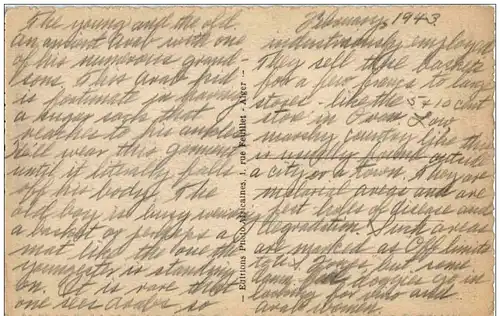 The young and the old.
An ancient Arab with one
of his numerous grand-
sons. This Arab kid
is fortunate in having
a sugar sack that
reaches to his ankles
He'll wear this garment
until it literally falls
off his body. The
old boy is busy weaving
a basket or perhaps a
mat like the one the
youngster is standing
on. It is rare that
one sees Arabs so
- Editions Photo-Africaines, 1, rue Feuillet - Alger -
February, 1943
industriously employed
They sell these baskets
for a few francs to large
stores - like the 5 & 10 cent
store in Oran. Low
marshy country like this
is usually found outside
a city or a town. They are
malarial areas and are
pest holes of disease and
degradation. Such areas
are marked as off limits
to U.S. Forces but some
doggies go in
looking for vino and
Arab women.